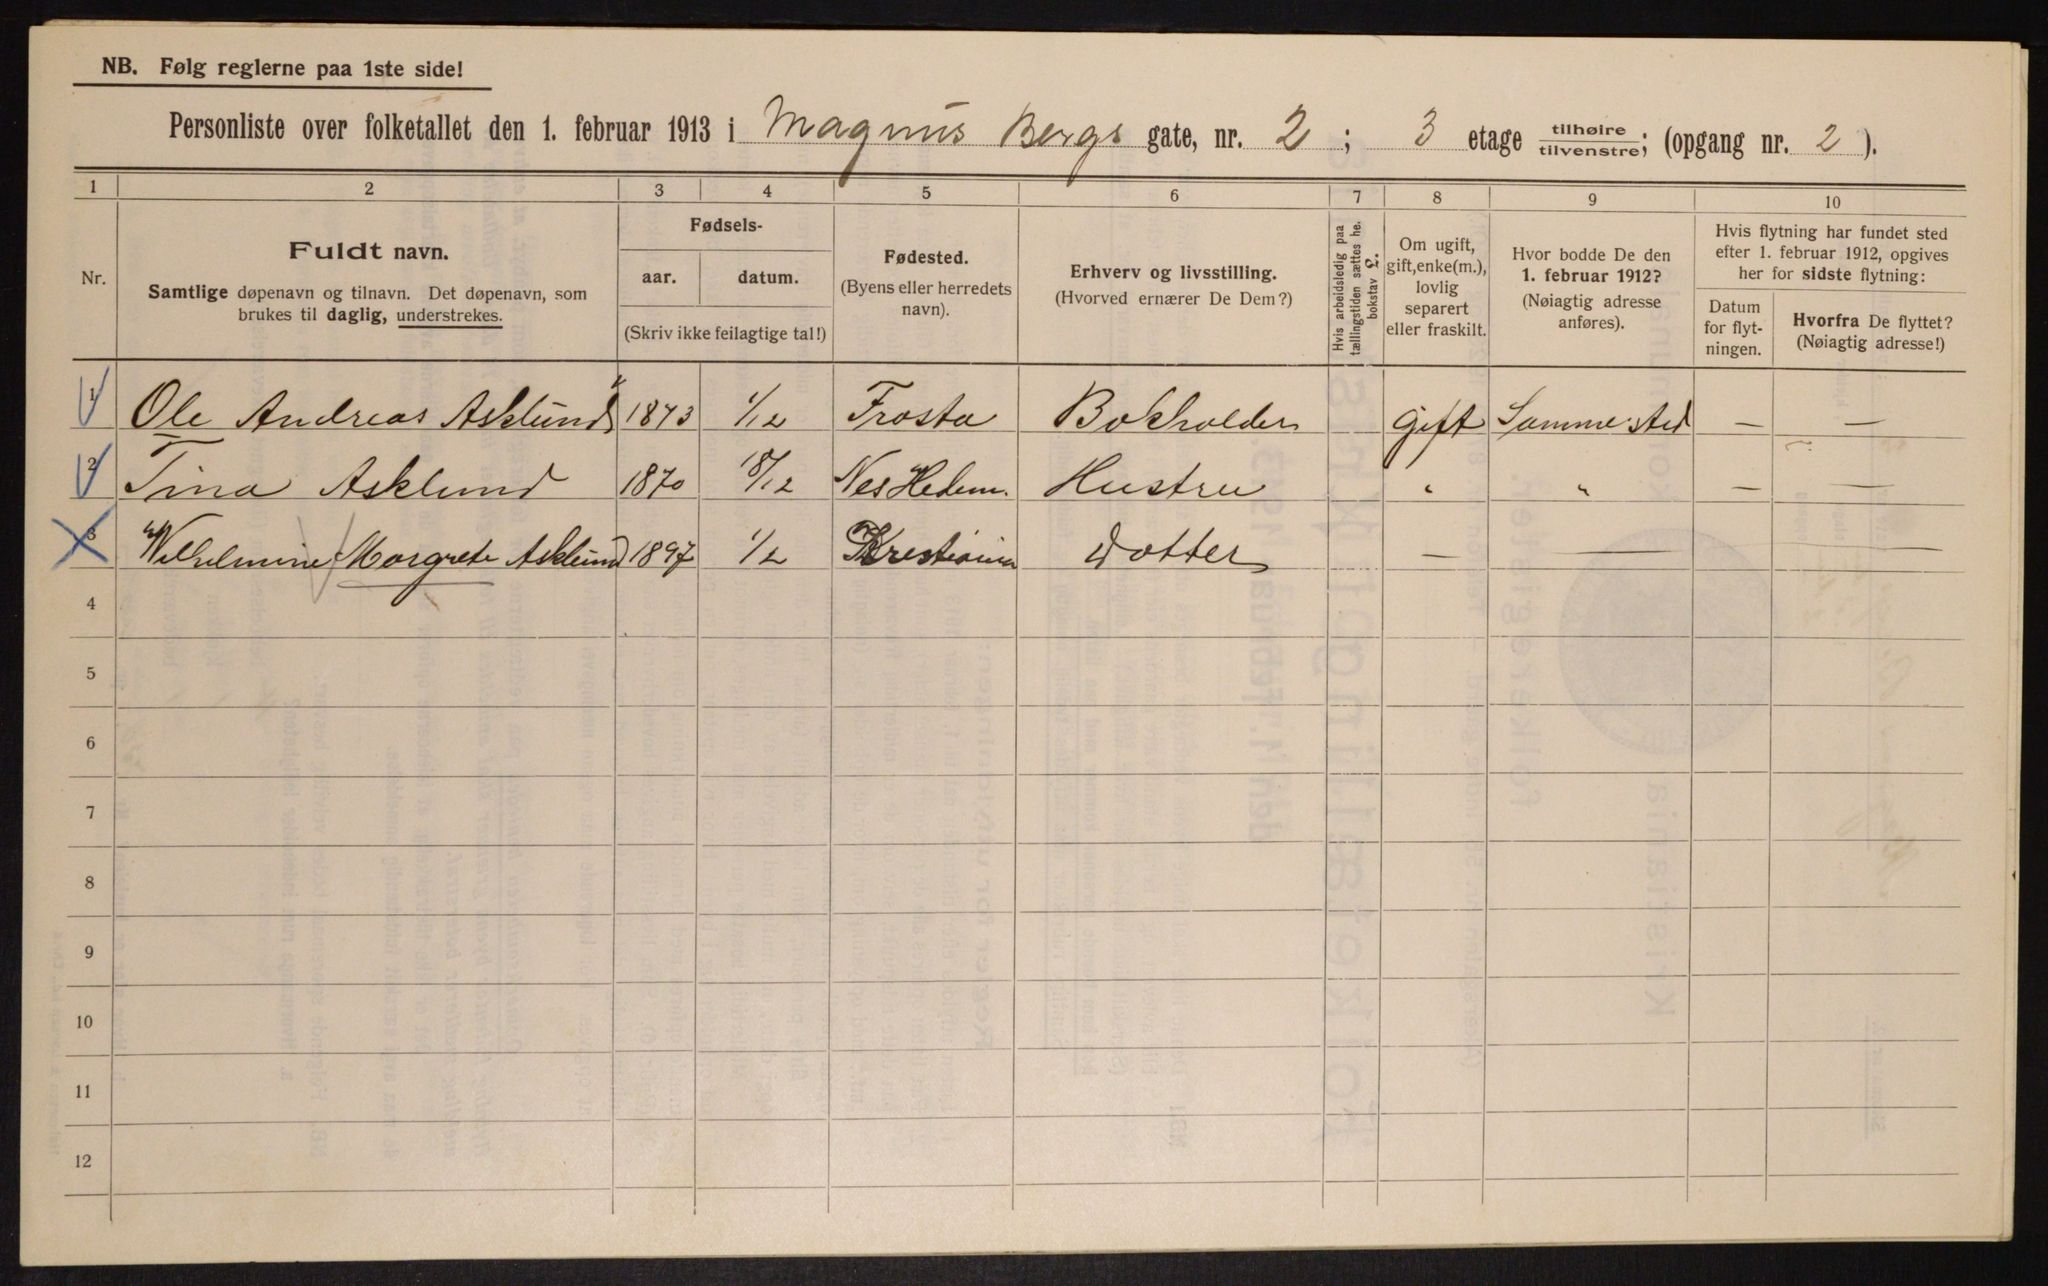 NB. Følg reglerne paa 1ste side!
Personliste over folketallet den 1. februar 1913 i Magnus Bergs gate, nr. 2 ; 3 etage tilhøire tilvenstre; (opgang nr. 2 ).
1 2 3 4 5 6 7 8 9 10
Nr.
Fuldt navn.
Samtlige døpenavn og tilnavn. Det døpenavn, som
brukes til daglig, understrekes.
Fødsels-
aar. datum.
(Skriv ikke feilagtige tal!)
Fødested.
(Byens eller herredets
navn).
Erhverv og livsstilling.
(Hvorved ernærer De Dem?)
Hvis arbeidsledig paa
tællingstiden sættes he.
bokstav L.
Om ugift,
gift, enke(m.),
lovlig
separert
eller fraskilt.
Hvor bodde De den
1. februar 1912?
(Nøiagtig adresse
anføres).
Hvis flytning har fundet sted
efter 1. februar 1912, opgives
her for sidste flytning:
Datum
for flyt-
ningen.
Hvorfra De flyttet?
(Nøiagtig adresse!)
1 Ole Andreas Asklund 1873 1/12 Frosta Bokholder gift Samme sted — —
2 Tina Asklund 1870 18/12 Nes Hedem. Hustru " " — —
3 Wilhelmine Margrete Asklund 1897 1/2 Krestiania Dotter — — —
4
5
6
7
8
9
10
11
12